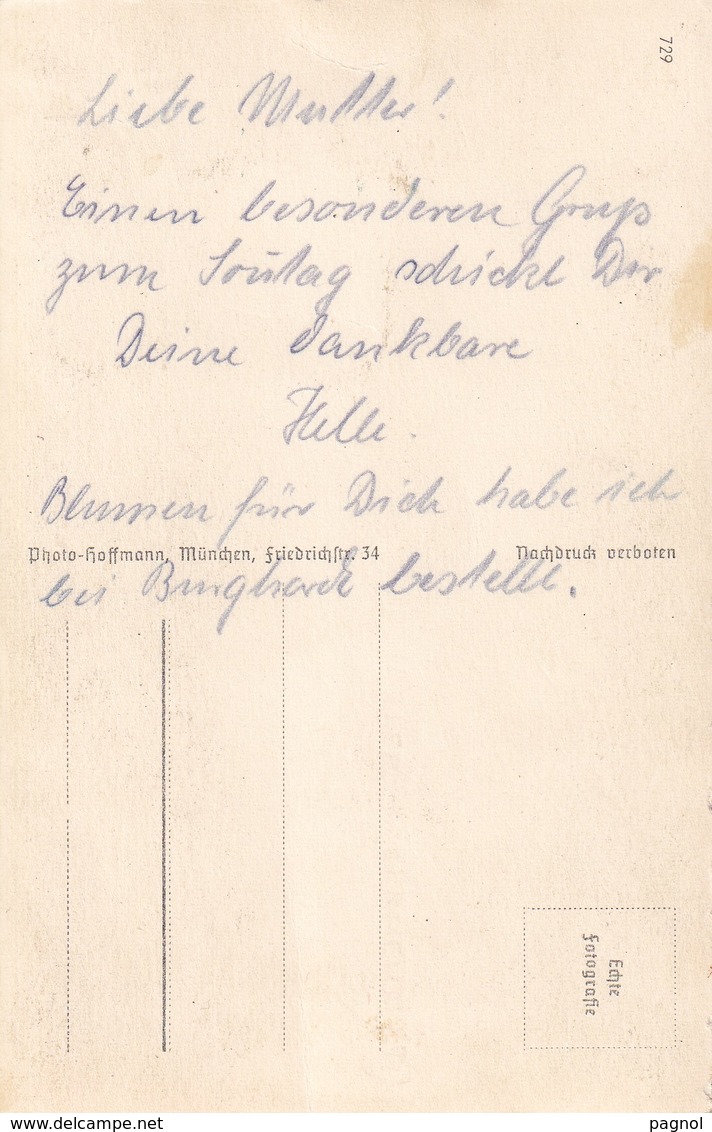 729
Liebe Mutter!
Einen besonderen Gruß
zum Sonntag schickt Dir
Deine dankbare
Helle.
Blumen für Dich habe ich
Photo-Hoffmann, München, Friedrichstr. 34 Nachdruck verboten
bei bestellt.
Echte
Fotografie
www.delcampe.net
pagnol